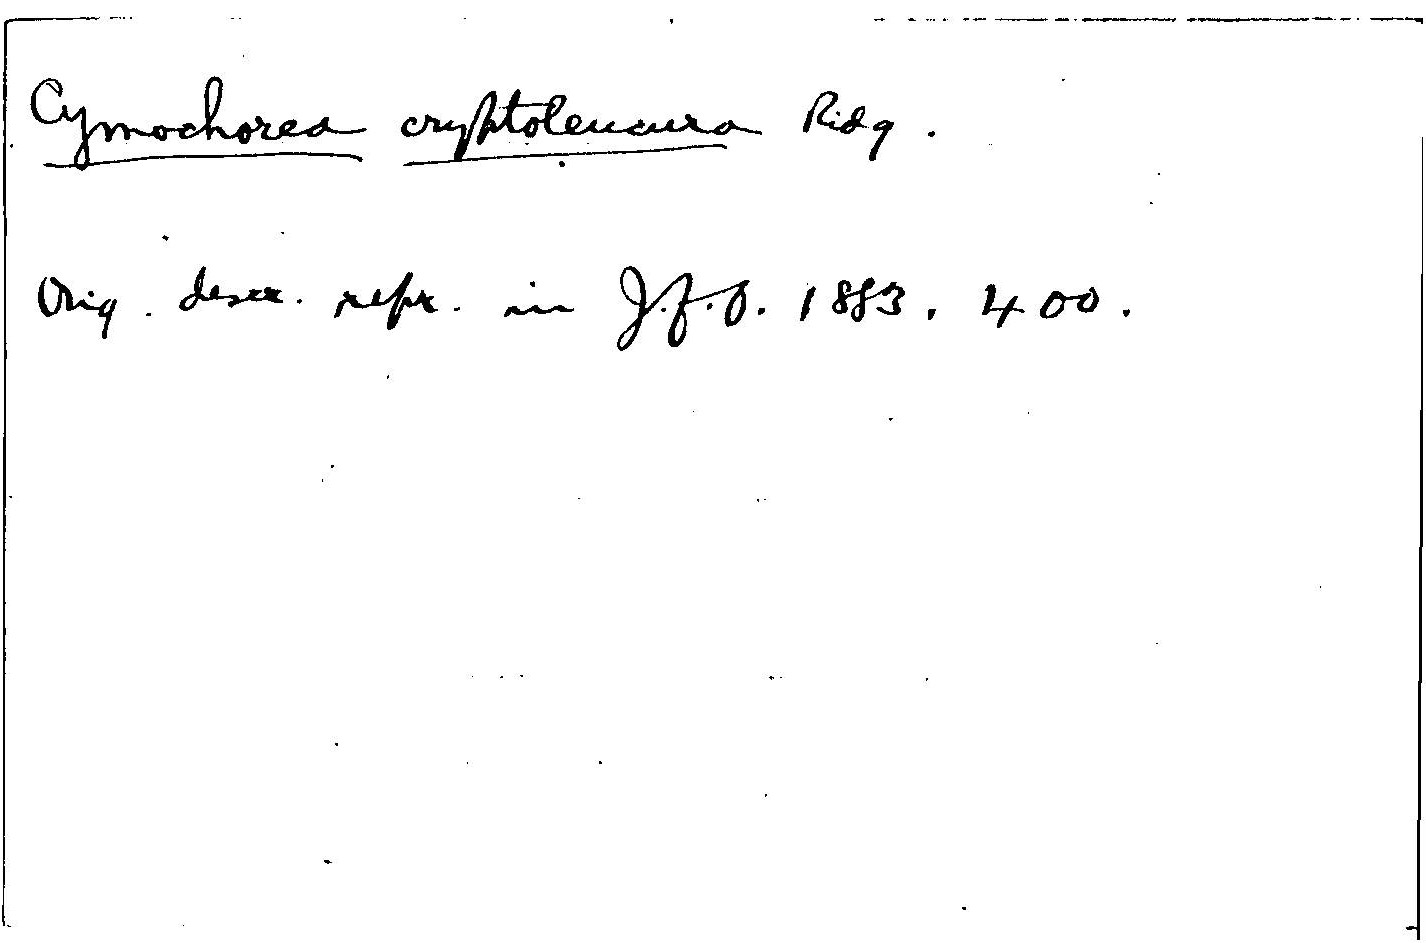 Cymochorea cryptoleucura Ridg.
Orig. descr. repr. in J.f.O. 1883. 400.